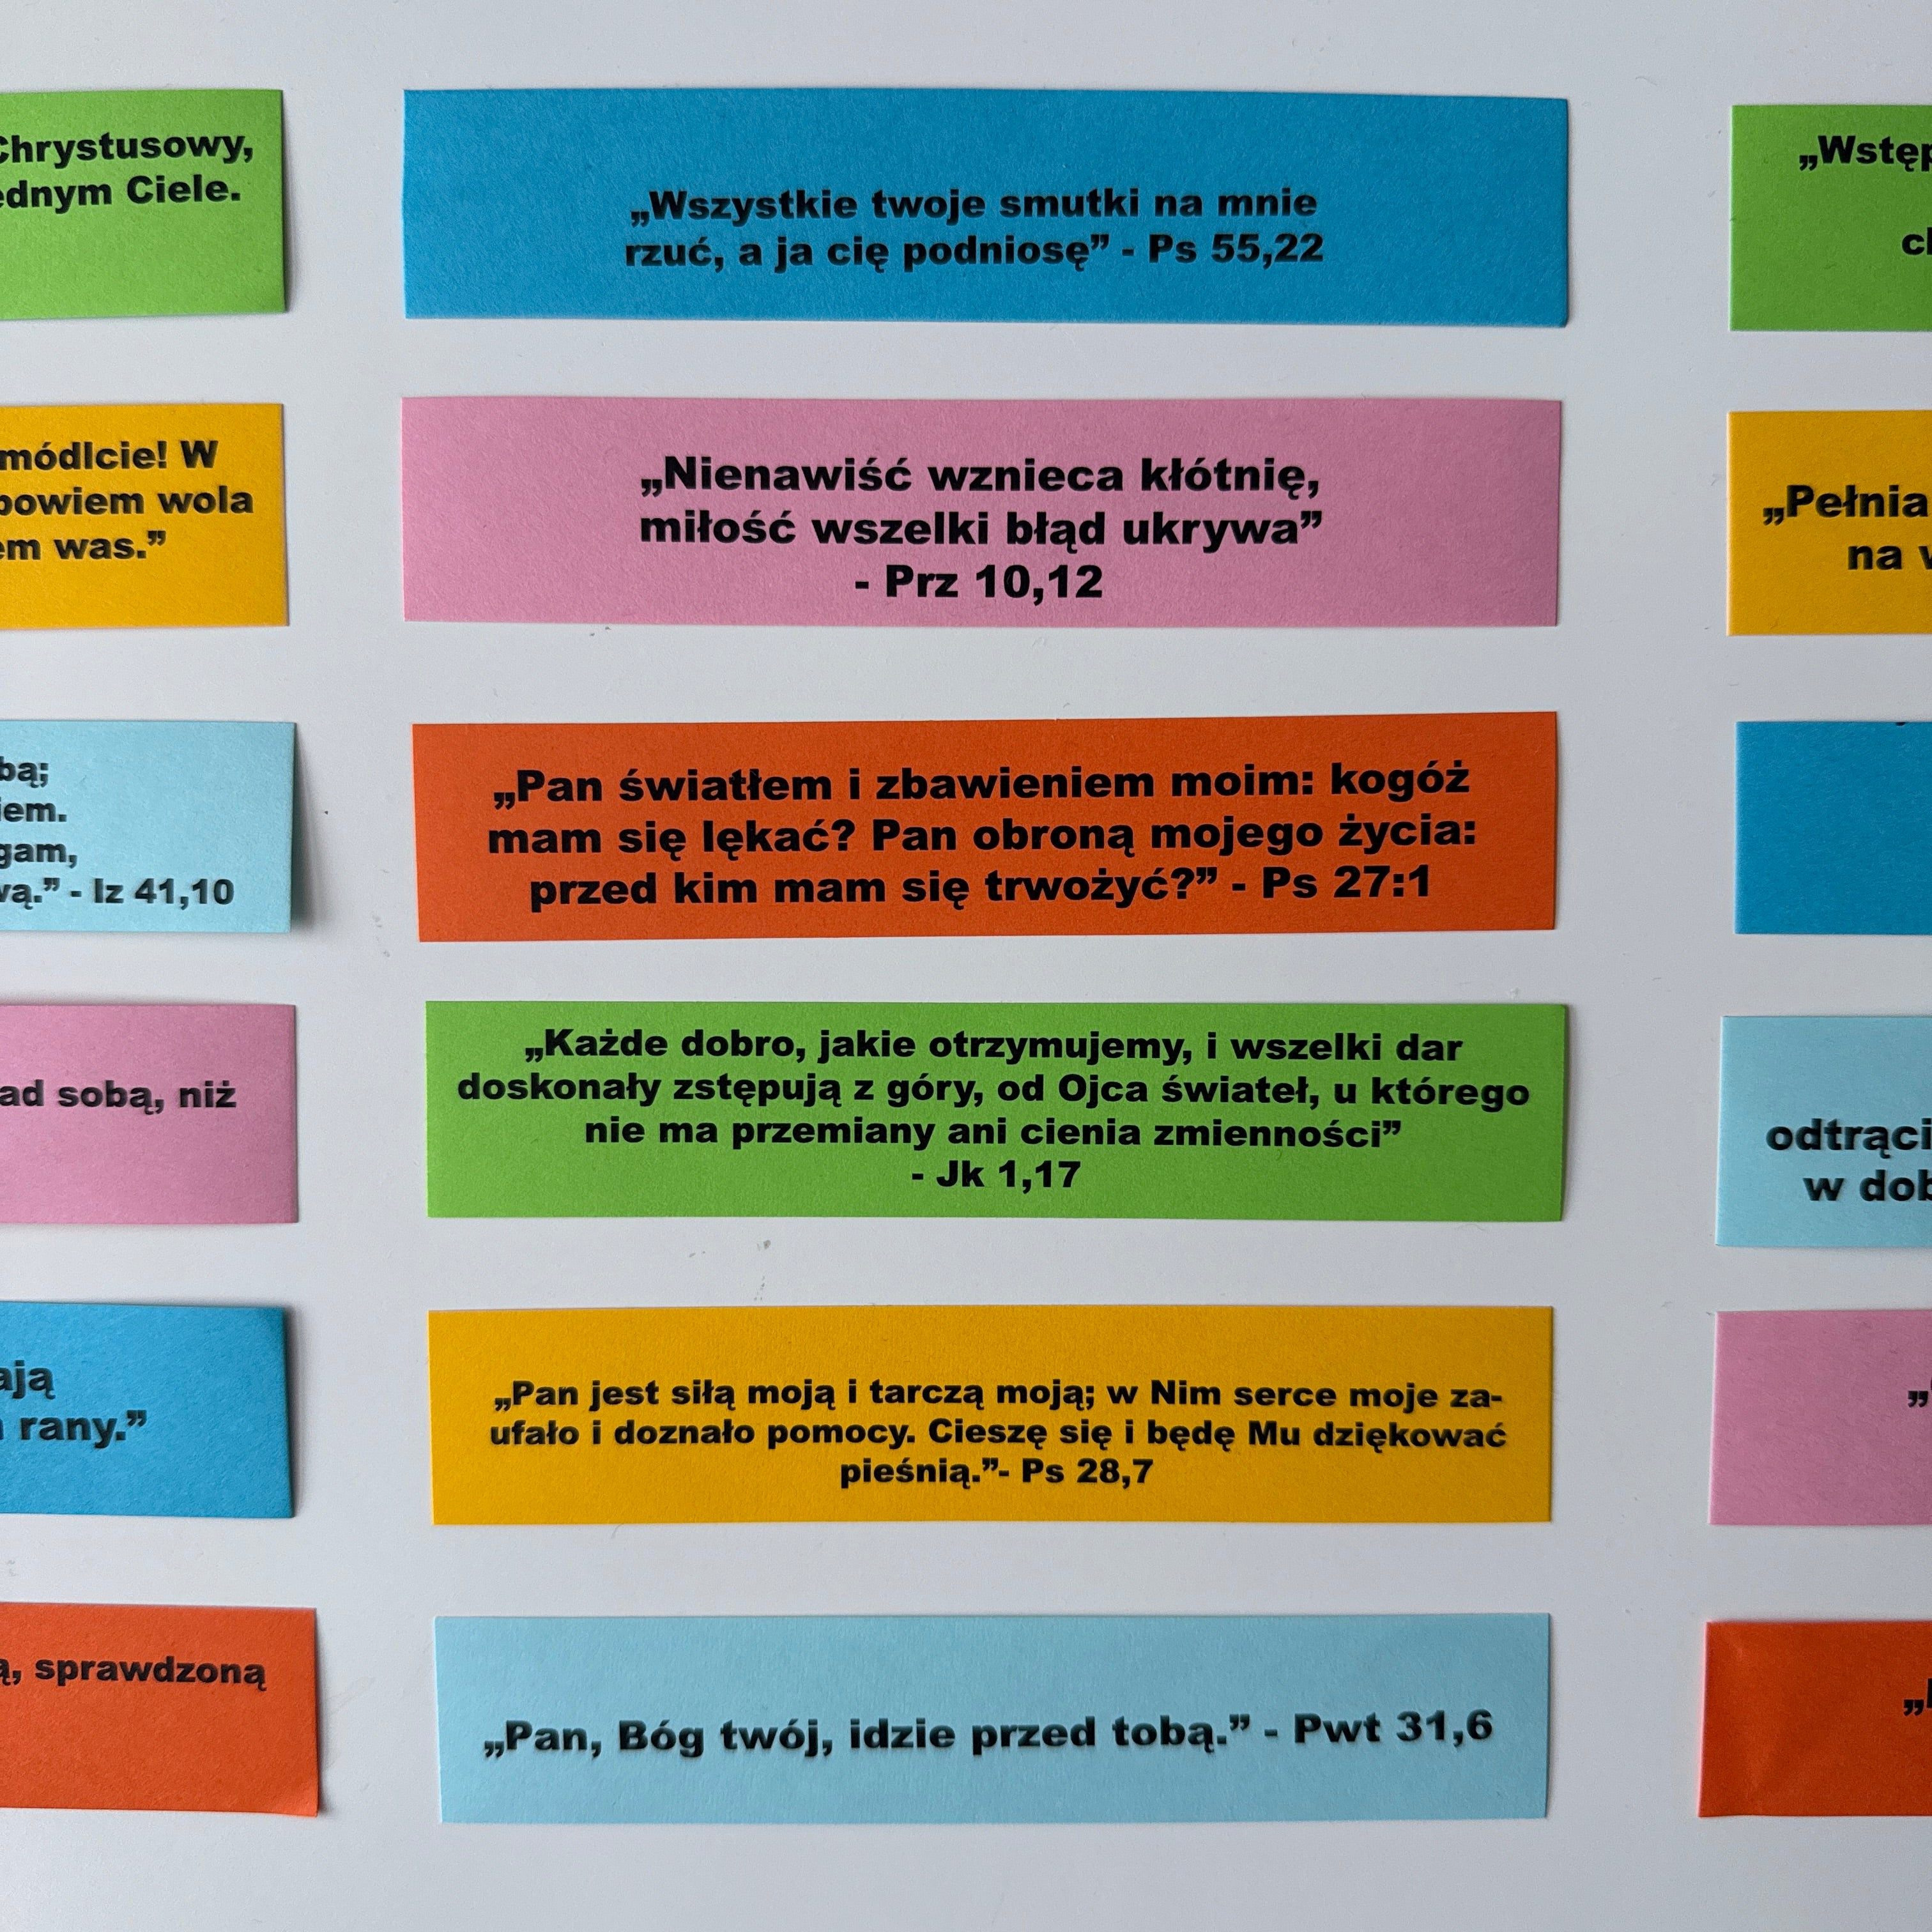 Chrystusowy,
Ciele.
módlcie! W
wola
was.”
Iz 41,10
sobą, niż
rany.”
sprawdzoną
„Wszystkie twoje smutki na mnie
rzuć, a ja cię podniosę” - Ps 55,22
„Nienawiść wznieca kłótnię,
miłość wszelki błąd ukrywa”
- Prz 10,12
„Pan światłem i zbawieniem moim: kogóż
mam się lękać? Pan obroną mojego życia:
przed kim mam się trwożyć?” - Ps 27:1
„Każde dobro, jakie otrzymujemy, i wszelki dar
doskonały zstępują z góry, od Ojca świateł, u którego
nie ma przemiany ani cienia zmienności”
- Jk 1,17
„Pan jest siłą moją i tarczą moją; w Nim serce moje za-
ufało i doznało pomocy. Cieszę się i będę Mu dziękować
pieśnią.”- Ps 28,7
„Pan, Bóg twój, idzie przed tobą.” - Pwt 31,6
„Pełnia
na
w